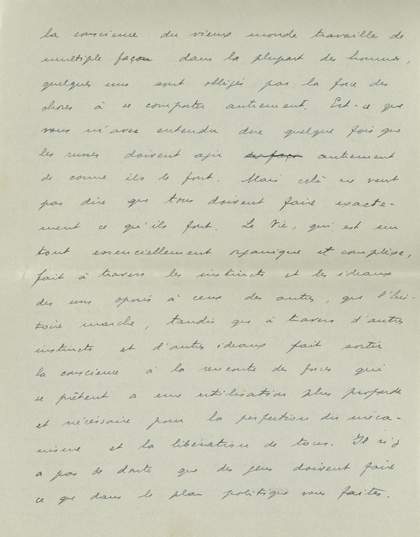 la conscience du vieux monde travaille de
multiple façon dans la plupart des hommes,
quelques uns sont obligés par la force des
choses à se comporter autrement. Est-ce que
vous m'avez entendu dire quelque fois que
les russes doivent agir autrement
de comme ils le font. Mais celà ne veut
pas dire que tous doivent faire exacte-
ment ce qu'ils font. La Vie, qui est un
tout essenciellement organique et complexe,
fait à travers les instincts et les idéaux
des uns oposés à ceux des autres, que l'his-
toire marche, tandis que à travers d'autres
instincts et d'autres idéaux fait sortir
la conscience à la rencontre des forces qui
se prêtent a une utilisation plus profonde
et nécessaire pour la perfection du méca-
nisme et la libération de tous. Il n'y
a pas de doute que des gens doivent faire
ce que dans le plan politique vous faites.